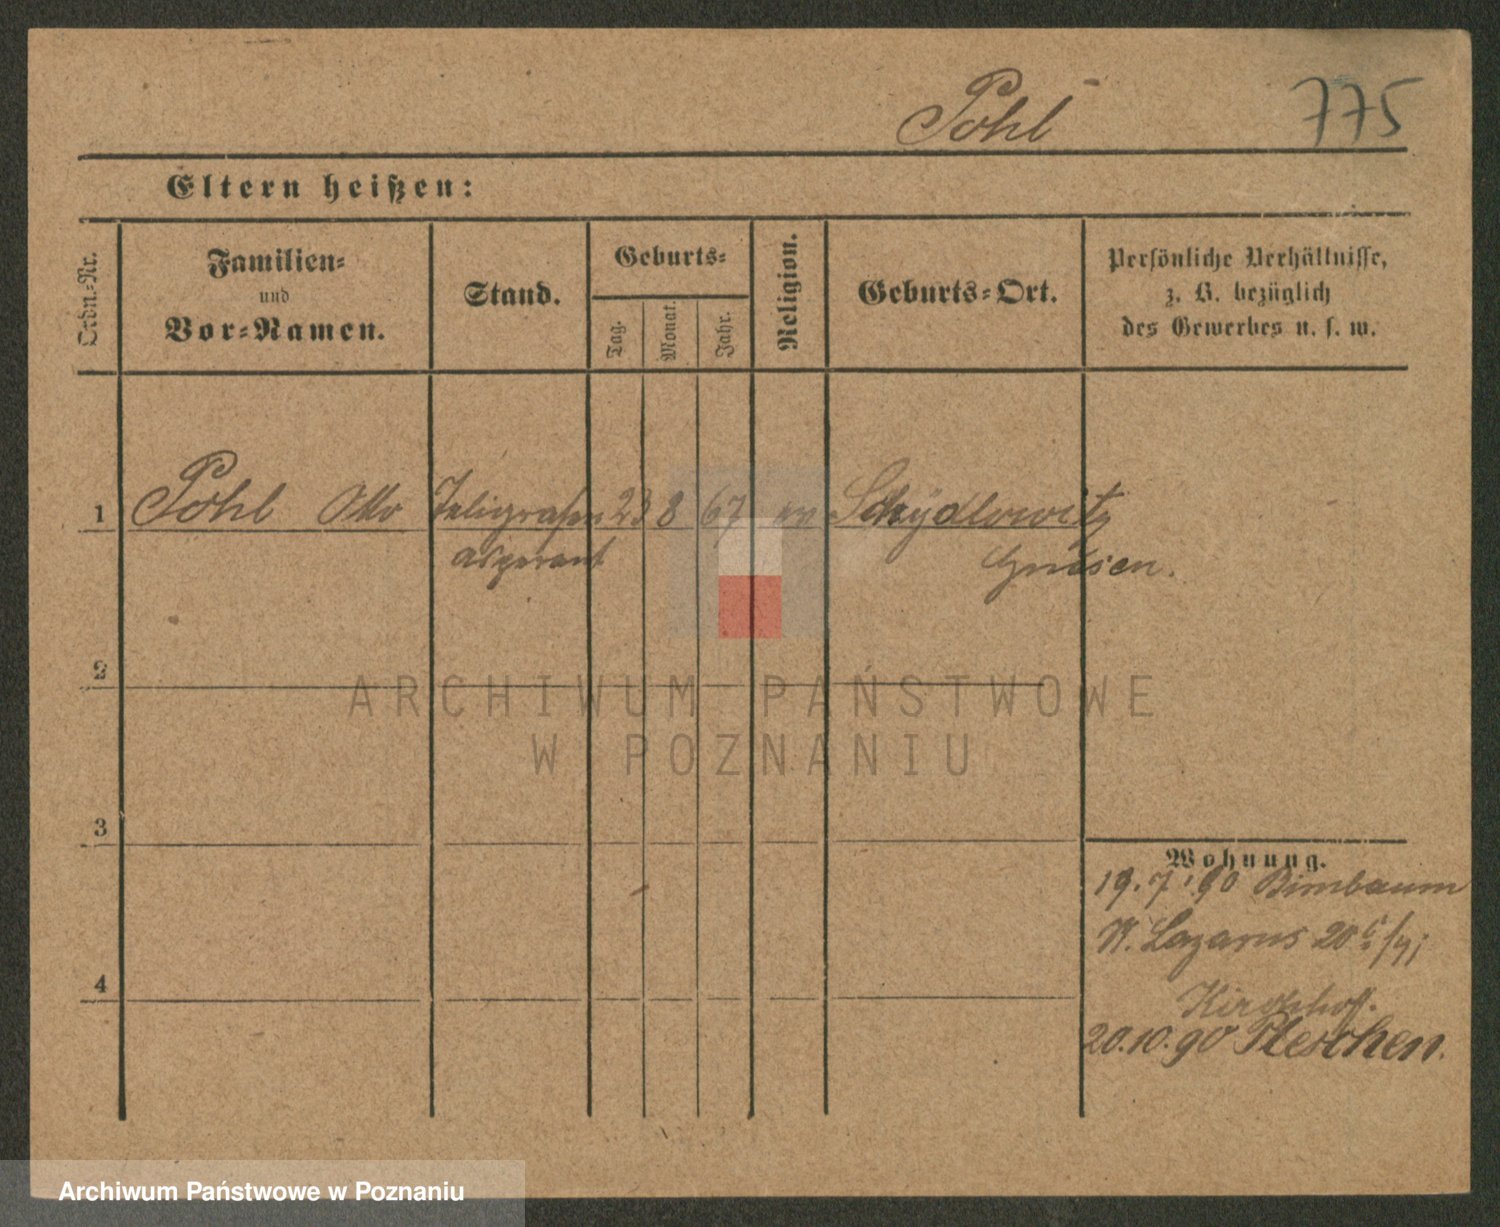 Pohl 775
Eltern heißen:
Ordn.-Nr.
Familien-
und
Vor-Namen.
Stand.
Geburts-
Tag.
Monat.
Jahr.
Religion.
Geburts-Ort.
Persönliche Verhältnisse,
z. B. bezüglich
des Gewerbes u. s. w.
1 Pohl Otto Telegrafen 23 8 67 ev
aspirant Gnesen.
2
ARCHIWUM PAŃSTWOWE
W POZNANIU
3
Wohnung.
19.7.90 Birnbaum
Lazarus 20
4
Kirchhoff.
20.10.90 Pleschen.
Archiwum Państwowe w Poznaniu